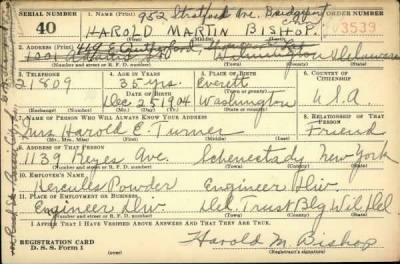 952 Stratford Ave. Bridgeport
SERIAL NUMBER
1. NAME (Print)
ORDER NUMBER
40
HAROLD MARTIN BISHOP.
V3539
(First) (Middle) (Last)
2. ADDRESS (Print)
Wilmington Delaware
(Number and street or R. F. D. number) (Town) (County) (State)
3. TELEPHONE
4. AGE IN YEARS
5. PLACE OF BIRTH
6. COUNTRY OF CITIZENSHIP
21809
35 yrs.
Everett
DATE OF BIRTH
(Town or county)
Dec 25 1904
Washington
U.S.A
(Exchange) (Number)
(Mo.) (Day) (Yr.)
(State or country)
7. NAME OF PERSON WHO WILL ALWAYS KNOW YOUR ADDRESS
8. RELATIONSHIP OF THAT PERSON
Mrs Harold E. Turner
Friend
(Mr., Mrs., Miss) (First) (Middle) (Last)
9. ADDRESS OF THAT PERSON
1139 Keyes Ave. Schenectady New York
(Number and street or R. F. D. number) (Town) (County) (State)
10. EMPLOYER'S NAME
Hercules Powder Engineer Div.
11. PLACE OF EMPLOYMENT OR BUSINESS
Engineer Div. Del. Trust Blg Wil. Del
(Number and street or R. F. D. number) (Town) (County) (State)
I AFFIRM THAT I HAVE VERIFIED ABOVE ANSWERS AND THAT THEY ARE TRUE.
REGISTRATION CARD
D. S. S. FORM 1
Harold M. Bishop
(Registrant's signature)